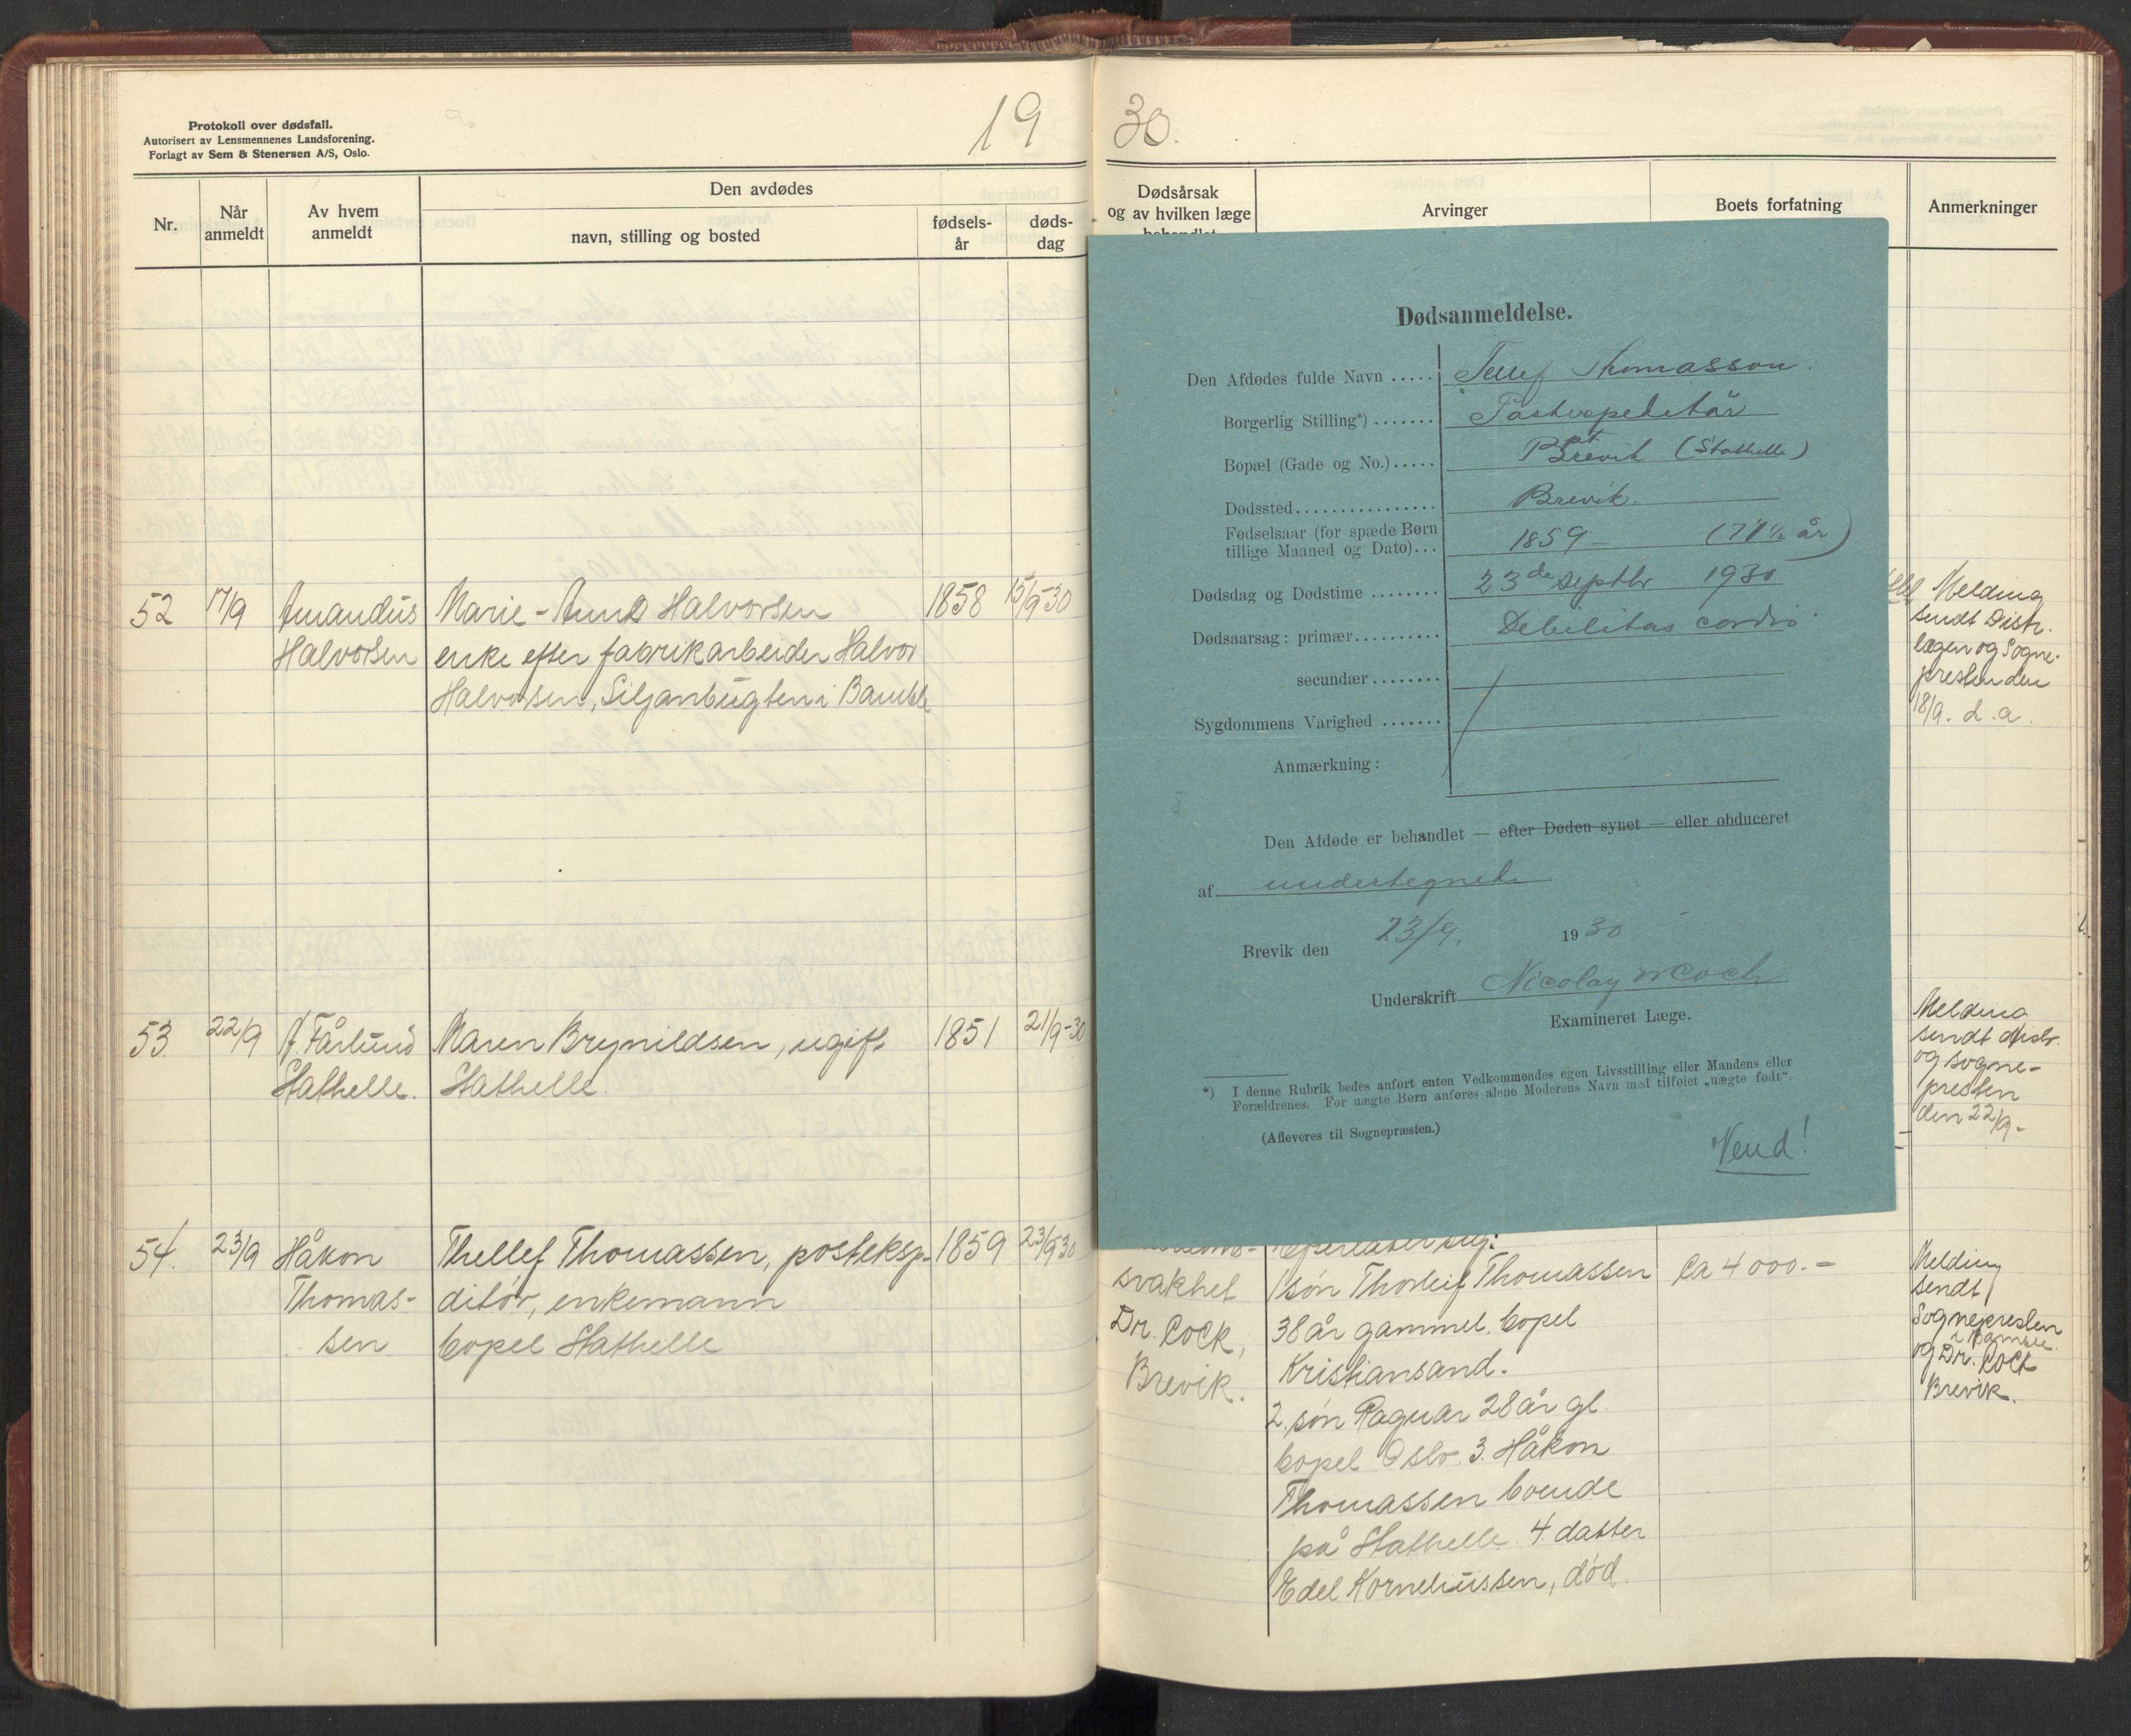 Protokoll over dødsfall.
Autorisert av Lensmennenes Landsforening.
Forlagt av Sem & Stenersen A/S, Oslo.
19
Nr.
Når
anmeldt
Av hvem
anmeldt
Den avdødes
navn, stilling og bosted
fødsels-
år
døds-
dag
52
17/9
Amandus
Halvorsen
Marie-Anna Halvorsen
enke efter fabrikarbeider Halvor
Halvorsen, Siljanbugten i Bamble
1858
15/9-30
53
22/9
Fårlund
Stathelle.
Maren Brynildsen, ugift
Stathelle.
1851
21/9-30
54.
23/9
Håkon
Thomas-
sen
Thellef Thomassen, posteksp-
ditør, enkemann
bopel Stathelle
1859
23/9 30
30.
Dødsårsak
og av hvilken læge
behandlet
Arvinger
Boets forfatning
Anmerkninger
Dødsanmeldelse.
Den Afdødes fulde Navn ..... Tellef Thomasson.
Borgerlig Stilling*) ....... Postexpeditør
Bopæl (Gade og No.)..... Brevik (Stathelle)
Dødssted................ Brevik.
Fødselsaar (for spæde Børn
tillige Maaned og Dato)... 1859 - (71 ½ år)
Dødsdag og Dødstime ........ 23de Septbr 1930
Dødsaarsag: primær.......... Debilitas cordis
secundær........
Sygdommens Varighed .......
Anmærkning:
Den Afdøde er behandlet — efter Døden synet — eller obduceret
af undertegnede
Brevik den 23/9. 1930
Underskrift Nicolay Coch
Examineret Læge.
*) I denne Rubrik bedes anført enten Vedkommendes egen Livsstilling eller Mandens eller
Forældrenes. For uægte Børn anføres alene Moderens Navn med tilføiet „uægte født“.
(Afleveres til Sognepræsten.)
Vend!
Melding
sendt Distr.
lægen og Sogne-
presten den
18/9. d.a.
Melding
sendt distr.
og sogne-
presten
den 22/9-
svakhet
Dr. Cock,
Brevik.
Efterlater sig:
1 søn Thorleif Thomassen
38 år gammel. bopel
Kristiansand.
2. søn Ragnar 28 år gl.
bopel Oslo. 3. Håkon
Thomassen boende
på Stathelle. 4. datter
Edel Korneliussen, død.
Ca 4 000.-
Melding
sendt
Sognepresten
i Bamble
og Dr. Cock
Brevik.